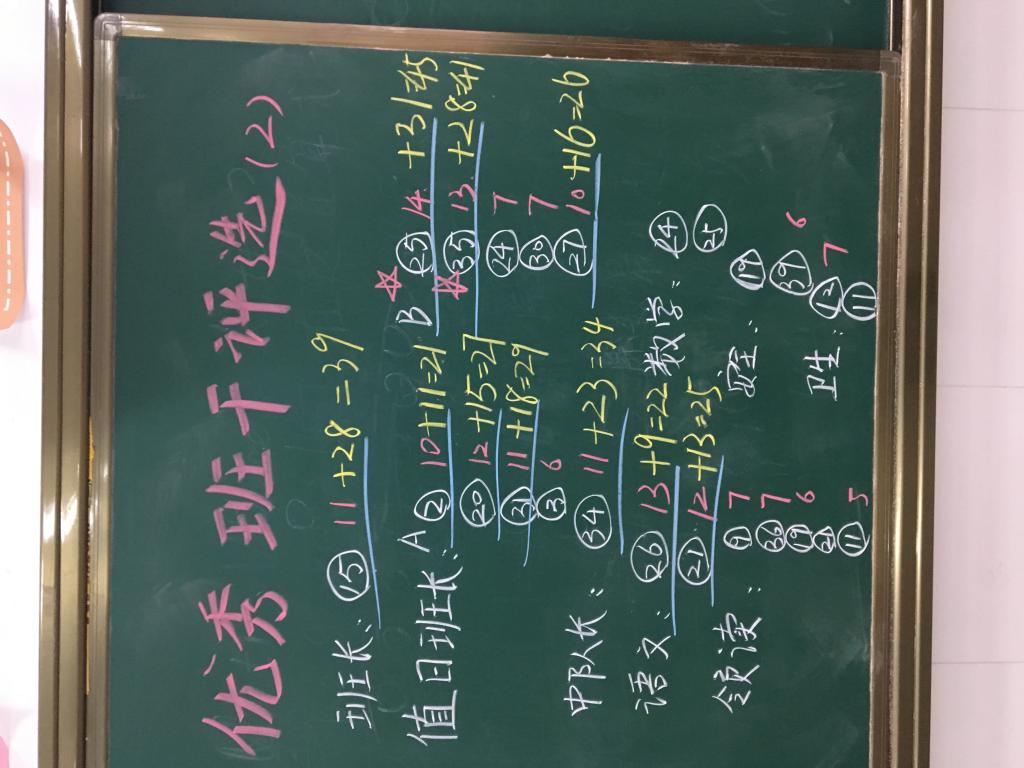 优秀班干评选(2)
班长: ⑮ 11+28=39
值日班长: A ② 10+11=21 B ☆ ㉕ 14 +31=45
⑳ 12+15=27 ☆ ㉟ 13 +28=41
㉛ 11+18=29 ㉔ 7
③ 6 ㉚ 7
㉗ 10+16=26
中队长: ㉞ 11+23=34
语文: ㉖ 13+9=22 数学: ㉔
㉑ 12+13=25 ㉕
领读: ⑨ 7 ⑲
7 ㊴ 6
⑲ 6 卫生: ⑫ 7
⑪ 5 ⑪